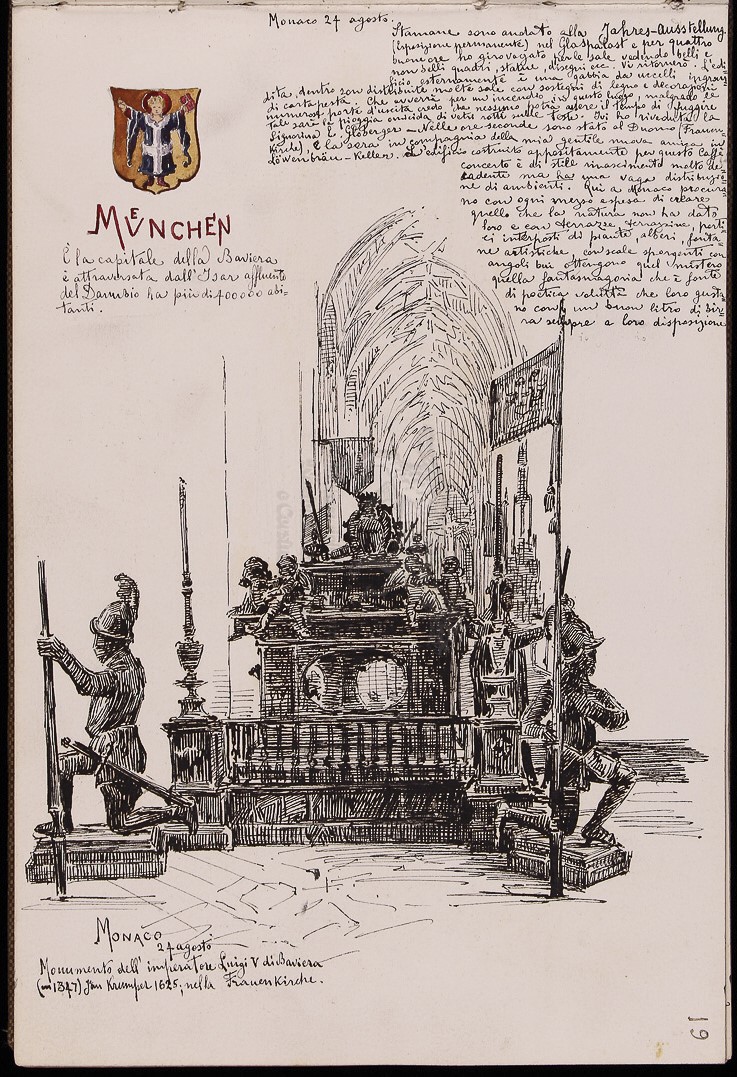 Monaco 24 agosto.
Stamane sono andato alla Jahres-Ausstellung
(Esposizione permanente) nel Glaspalast e per quattro
buone ore ho girovagato per le sale vedendo belli e
non belli quadri, statue, disegni ecc. Vi ritornerò. L'edi-
ficio esternamente è una gabbia da uccelli ingran-
dita, dentro son distribuite molte sale con sostegni di legno e decorazioni
di cartapesta. Che avverrà per un incendio in questo luogo, malgrado le
immense porte d'uscita credo che nessuno potrà avere il tempo di fuggire
tale sarà la pioggia omicida di vetri rotti sulle teste. Ivi ho riveduta la
Signorina E. Globerger - Nelle ore seconde sono stato al Duomo (Frauen-
Kirche), e la sera in compagnia della mia gentile nuova amica in
Löwenbräu-Keller. L'edificio costruito appositamente per questo Caffè
concerto è di stile rinascimento molto de-
cadente ma ha una vaga distribuzio-
ne di ambienti. Qui a Monaco procura-
no con ogni mezzo e spesa di creare
quello che la natura non ha dato
loro e con terrazze, terrazzine, porti-
ci interposti di piante, alberi, fonta-
ne artistiche, con scale sporgenti con
angoli bui ottengono quel mistero
quella fantasmagoria che è fonte
di poetica voluttà che loro gusta-
no con un buon litro di bir-
ra sempre a loro disposizione
MÜNCHEN
È la capitale della Baviera
è attraversata dall'Isar affluente
del Danubio ha più di 400000 abi-
tanti.
MONACO
24 agosto
Monumento dell'imperatore Luigi V di Baviera
(m 1347) Jan Krumper 1625, nella Frauenkirche.
19